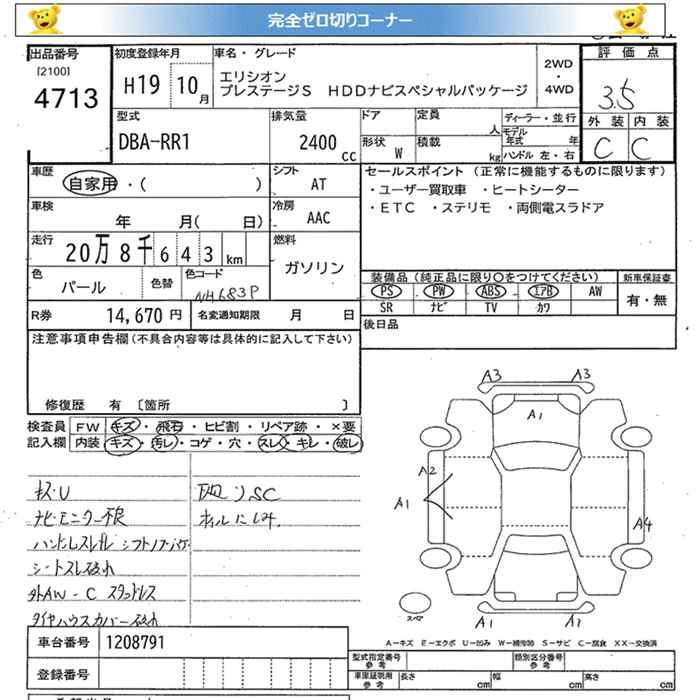 完全ゼロ切りコーナー
出品番号 初度登録年月 車名・グレード 評価点
[2100]
4713 H19 10月 エリシオン 2WD・4WD 3.5
プレステージS HDDナビスペシャルパッケージ
外装 内装
C C
型式 排気量 ドア 定員 人 ディーラー・並行
DBA-RR1 2400cc 形状 W 積載 kg モデル年式 年
ハンドル 左・右
車歴 シフト セールスポイント (正常に機能するものに限ります)
自家用・( ) AT ・ユーザー買取車 ・ヒートシーター
・ETC ・ステリモ ・両側電スラドア
車検 年 月( 日) 冷房 AAC
走行 20万8千643km 燃料 ガソリン
色 パール 色替 色コード NH683P
装備品 (純正品に限り〇をつけてください) 新車保証書
PS PW ABS エアB AW 有・無
SR ナビ TV カワ
R券 14,670円 名変通知期限 月 日
後日品
注意事項申告欄(不具合内容等は具体的に記入して下さい)
修復歴 有 〔箇所 〕
検査員記入欄 FW キズ・飛石・ヒビ割・リペア跡・×要
内装 キズ・汚レ・コゲ・穴・スレ・キレ・破レ
キズ・U
ナビモニター不良
シートスレ破れ
外AW-C スタッドレス
タイヤハウスカバー破れ
A3 A3
A1
A2
A1
A4
スペア
A-キズ E-エクボ U-凹み W-補修跡 S-サビ C-腐食 XX-交換済
車台番号 1208791
登録番号
型式指定番号 参考 類別区分番号 参考
車庫証明 参考 長さ cm 幅 cm 高さ cm